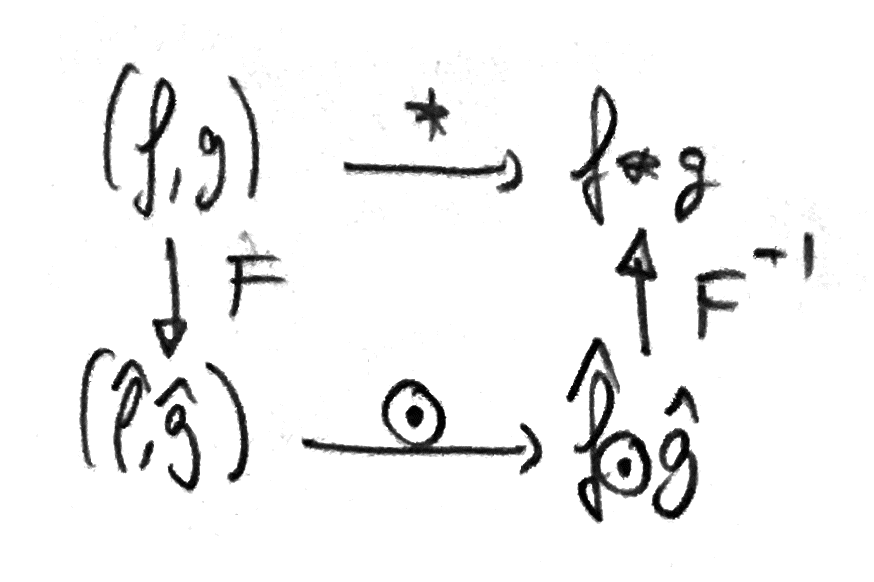 (f, g) * f * g
F F⁻¹
(f̂, ĝ) ⊙ f̂ ⊙ ĝ